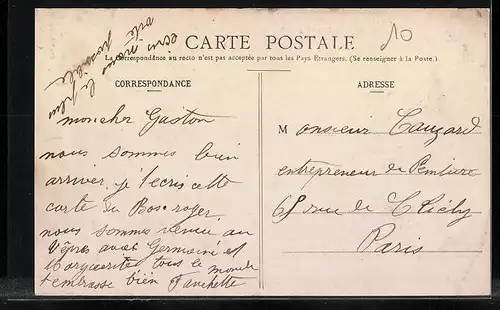 CARTE POSTALE
10
La Correspondance au recto n'est pas acceptée par tous les Pays Etrangers. (Se renseigner à la Poste.)
CORRESPONDANCE
ADRESSE
mon cher Gaston
nous sommes bien
arriver. je t'ecris cette
carte du Bosc roger
nous sommes venue au
Vêpres avec Germaine et
Marguerite tous le monde
t'embrasse bien Fanchette
Monsieur Cauzard
entrepreneur de Peinture
68 rue de Clichy
Paris